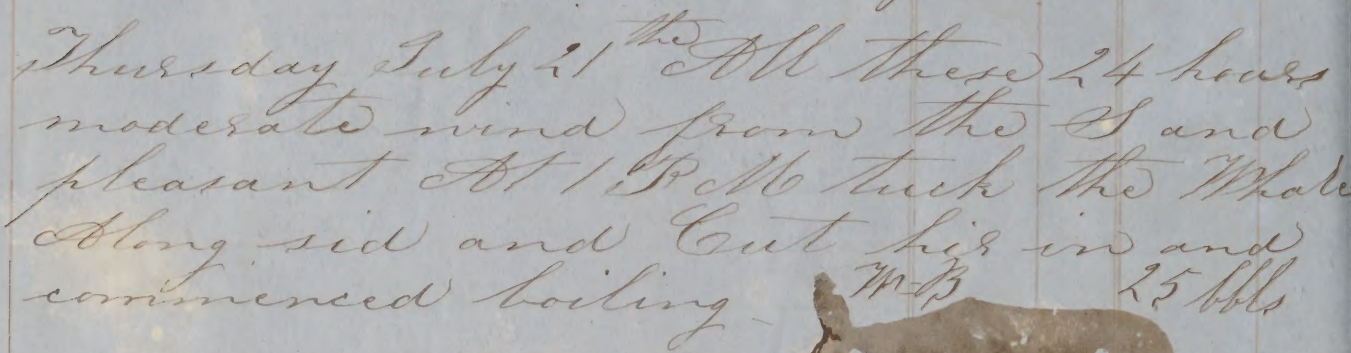 Thursday July 21the All these 24 hours
moderate wind from the S and
pleasant At 1 P M tuck the Whale
Along sid and Cut hir in and
commenced boiling W-B 25 bbls